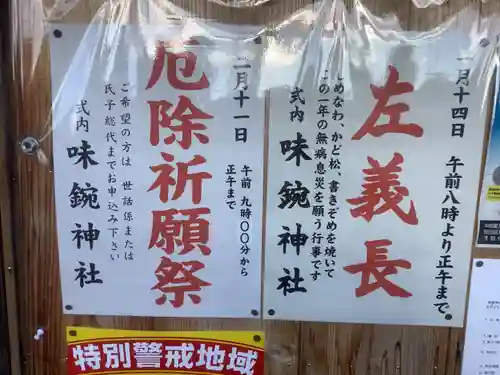 一月十四日　午前八時より正午まで
左義長
しめなわ、かど松、書きぞめを焼いて
この一年の無病息災を願う行事です
式内　味鋺神社
二月十一日　午前　九時〇〇分から
正午まで
厄除祈願祭
ご希望の方は　世話係または
氏子総代までお申込み下さい
式内　味鋺神社
特別警戒地域